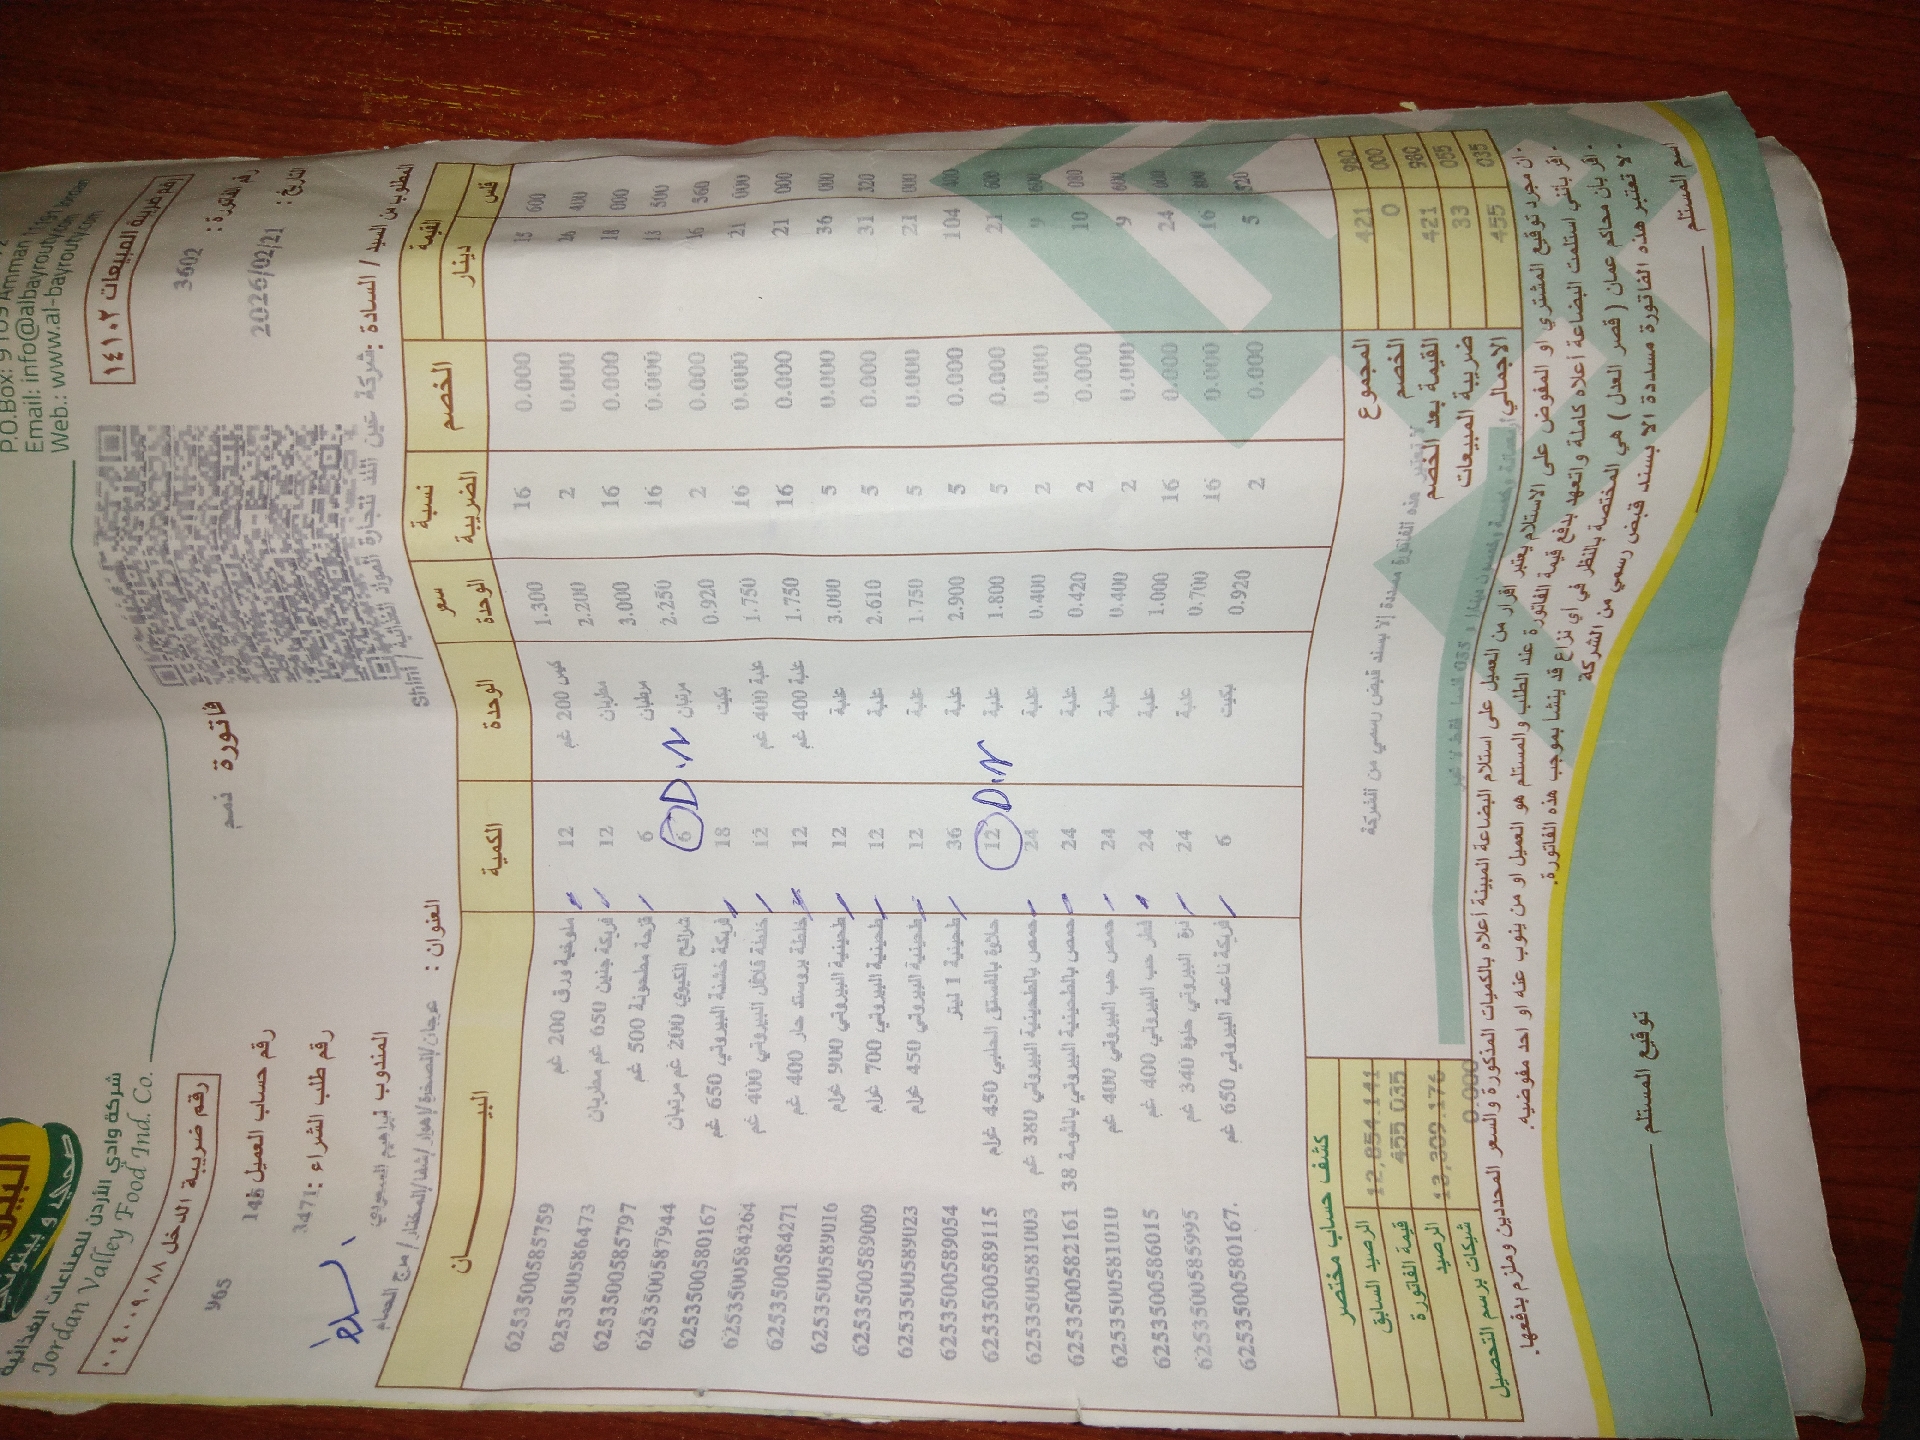 البيروتي
صحي و بيتوتي
شركة وادي الأردن للصناعات الغذائية
Jordan Valley Food Ind. Co.
P.O.Box: 9109 Amman
Email: info@albayrouty
Web.: www.al-bayrouty
رقم ضريبة الدخل ٠٠٤٠٠٩٠٨٨
رقم ضريبة المبيعات ١٤١٠٢
فاتورة ذمم
965
رقم الفاتورة : 3602
رقم حساب العميل 148
التاريخ : 2026/02/21
رقم طلب الشراء : 3471
المطلوب من السيد / السادة : شركة عين الله لتجارة المواد الغذائية / shini
المندوب ابراهيم السعودي
العنوان :
البيـــــــان الكمية الوحدة سعر الوحدة نسبة الضريبة الخصم القيمة دينار فلس
6253500585759 ملوخية ورق 200 غم 12 كيس 200 غم 1.300 16 0.000 15 600
6253500586473 فريكة جنين 650 غم مطربان 12 مطربان 2.200 2 0.000 26 400
6253500585797 قزحة مطحونة 500 غم 6 مرطبان 3.000 16 0.000 18 000
6253500587944 شرائح الكيوي 200 غم مرتبان 6 مرتبان 2.250 16 0.000 13 500
6253500580167 فريكة خشنة البيروتي 650 غم 18 بكيت 0.920 2 0.000 16 560
6253500584264 خلطة فلافل البيروتي 400 غم 12 علبة 400 غم 1.750 16 0.000 21 000
6253500584271 خلطة بروستد حار 400 غم 12 علبة 400 غم 1.750 16 0.000 21 000
6253500589016 طحينية البيروتي 900 غرام 12 علبة 3.000 5 0.000 36 000
6253500589009 طحينية البيروتي 700 غرام 12 علبة 2.610 5 0.000 31 320
6253500589023 طحينية البيروتي 450 غرام 12 علبة 1.750 5 0.000 21 000
6253500589054 طحينية 1 ليتر 36 علبة 2.900 5 0.000 104 400
6253500589115 حلاوة بالفستق الحلبي 450 غرام 12 علبة 1.800 5 0.000 21 600
6253500581003 حمص بالطحينية البيروتي 380 غم 24 علبة 0.400 2 0.000 9 600
6253500582161 حمص بالطحينية البيروتي بالثومة 38 24 علبة 0.420 2 0.000 10 080
6253500581010 حمص حب البيروتي 400 غم 24 علبة 0.400 2 0.000 9 600
6253500586015 فطر حب البيروتي 400 غم 24 علبة 1.000 16 0.000 24 000
6253500585995 ذرة البيروتي حلوة 340 غم 24 علبة 0.700 16 0.000 16 800
6253500580167. فريكة ناعمة البيروتي 650 غم 6 بكيت 0.920 2 0.000 5 520
D.N
D.N
كشف حساب مختصر
الرصيد السابق 12,854.141
قيمة الفاتورة 455.035
الرصيد 13,309.176
شيكات برسم التحصيل 0.000
لا تعتبر هذه الفاتورة مسددة إلا بسند قبض رسمي من الشركة
المجموع 421 980
الخصم 0 000
القيمة بعد الخصم 421 980
ضريبة المبيعات 33 055
الاجمالي 455 035
· ان مجرد توقيع المشتري او المفوض على الاستلام يعتبر اقرار من العميل على استلام البضاعة المبينة أعلاه بالكميات المذكورة والسعر المحددين وملزم بدفعها.
· اقر بأنني استلمت البضاعة أعلاه كاملة واتعهد بدفع قيمة الفاتورة عند الطلب والمستلم هو العميل او من ينوب عنه او احد مفوضيه.
· اقر بان محاكم عمان ( قصر العدل ) هي المختصة بالنظر في أي نزاع قد ينشأ بموجب هذه الفاتورة.
· لا تعتبر هذه الفاتورة مسددة الا بسند قبض رسمي من الشركة
اسم المستلم
توقيع المستلم